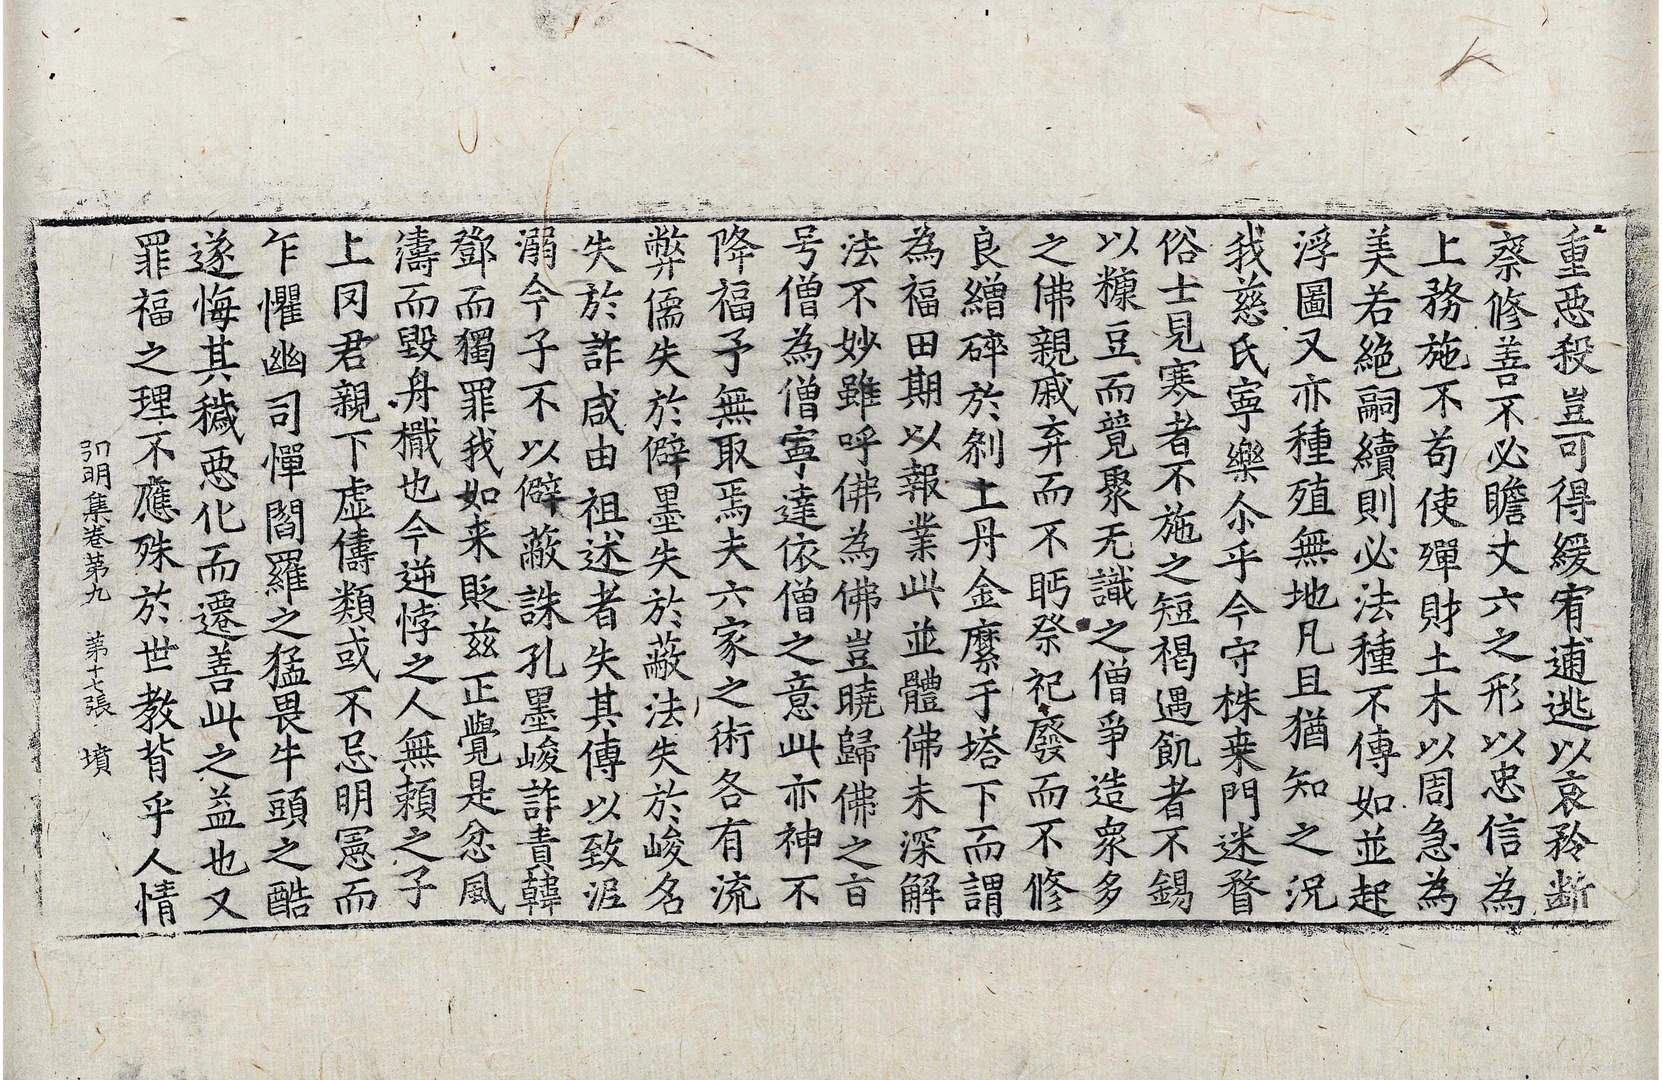 重惡殺豈可得緩宥逋逃以哀矜斷
察修善不必瞻丈六之形以忠信為
上務施不苟使殫財土木以周急為
美若絶嗣續則必法種不傳如並起
浮圖又亦種殖無地凡且猶知之況
我慈氏寧樂尒乎今守株桒門迷瞀
俗士見寒者不施之短褐遇飢者不錫
以糠豆而競聚无識之僧爭造衆多
之佛親戚弃而不眄祭祀廢而不修
良繒碎於剎土丹金縻于塔下而謂
為福田期以報業此並體佛未深解
法不妙雖呼佛為佛豈曉歸佛之旨
号僧為僧寧達依僧之意此亦神不
降福予無取焉夫六家之術各有流
弊儒失於僻墨失於蔽法失於峻名
失於訐咸由祖述者失其傳以致泥
溺今子不以僻蔽誅孔墨峻訐責韓
鄧而獨罪我如来貶茲正覺是忿風
濤而毀舟檝也今逆悖之人無賴之子
上罔君親下虛儔類或不忌明憲而
乍懼幽司憚閻羅之猛畏牛頭之酷
遂悔其穢惡化而遷善此之益也又
罪福之理不應殊於世教背乎人情
弘明集卷第九　第十七張　墳